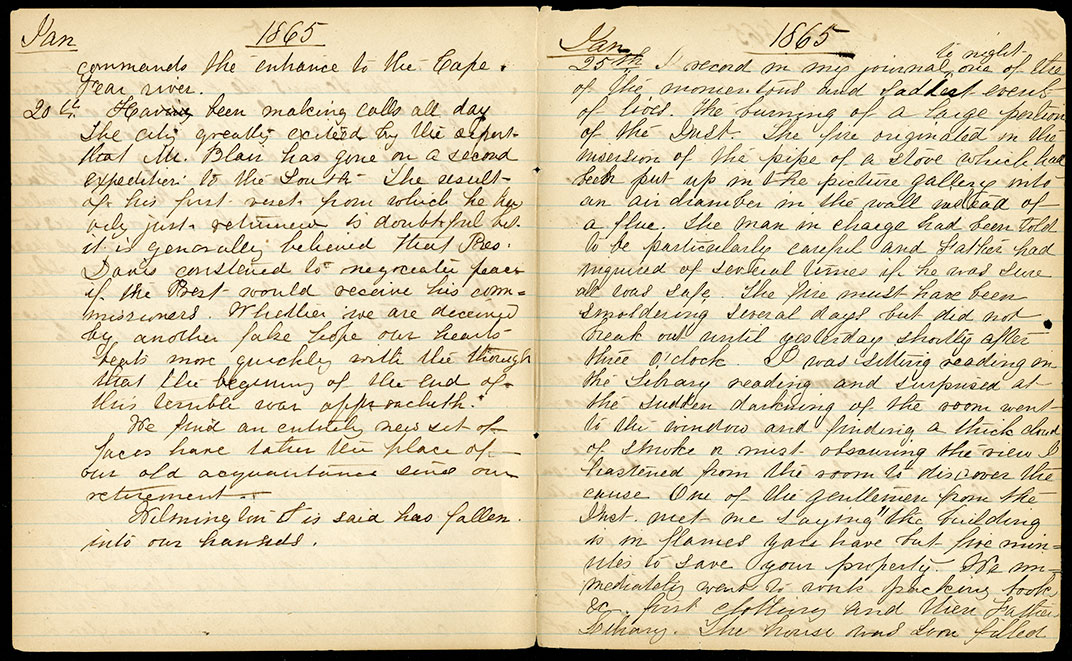 Jan 1865
commands the entrance to the Cape
Fear river.
20th. Having been making calls all day
The city greatly excited by the report
that Mr. Blair has gone on a second
expedition to the South The result
of his first visit from which he has
only just returned is doubtful but
it is generally believed that Pres.
Davis consented to negociate peace
if the Prest would receive his com=
missioners. Whether we are deceived
by another false hope our hearts
beat more quickly with the though
that the beginning of the end of
this terrible war approacheth.
We find an entirely new set of
faces have taken the place of
our old acquaintance since our
retirement
Wilmington it is said has fallen
into our hands.
Jan 1865
25th I record in my journal to night one of the
of the momentous and saddest events
of lives. The burning of a large portion
of the Inst. The fire originated in the
insersion of the pipe of a stove which had
been put up in the picture gallery into
an air chamber in the wall instead of
a flue. The man in charge had been told
to be particularly careful and Father had
inquired of several times if he was sure
all was safe. The fire must have been
smoldering several days but did not
break out until yesterday shortly after
three o'clock. I was sitting reading in
the Library reading and surprised at
the sudden darkning of the room went
to the window and finding a thick cloud
of smoke or mist obscuring the view I
hastened from the room to discover the
cause One of the gentlemen from the
Inst. meet me saying "the building
is in flames you have but five min=
utes to save your property. We im=
mediately went to work packing books
&c. first clothing and then Father
Library. The house was soon filled